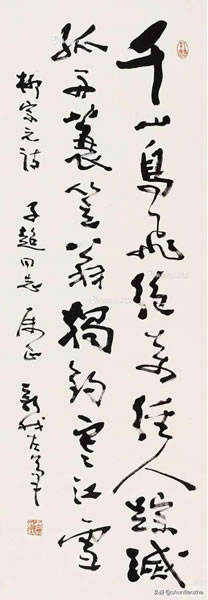 千山鳥飛絕萬徑人踪滅
孤舟蓑笠翁獨釣寒江雪
柳宗元詩 子超同志属正 新我左筆